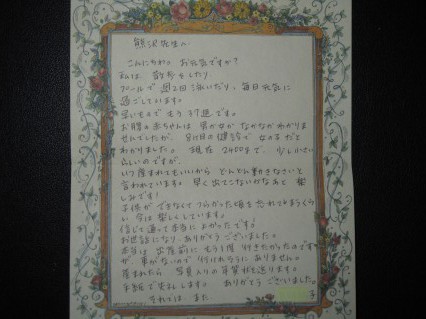 熊沢先生へ
こんにちわ。お元気ですか?
私は、散歩をしたり
プールで週2回泳いだり、毎日元気に
過ごしています。
早いもので もう37週です。
お腹の赤ちゃんは 男か女か なかなかわかりま
せんでしたが、 健診で 女の子だと
わかりました。 現在 2400gで、少し小さい
らしいのですが、
いつ産まれてもいいから どんどん動きなさいと
言われています。早く出てこないかなあと 楽
しみです!
子供が できなくてつらかった頃を 忘れてしまうくら
い 今は楽しくしています。
信じて通って本当に よかったです!
お世話になり、ありがとうございました。
本当は 出産前に もう1度 行きたかったのです
が、車がないので 行けれそうに ありません。
産まれたら 写真入りの 年賀状を送ります。
手紙で失礼します。 ありがとうございました。
それでは、また